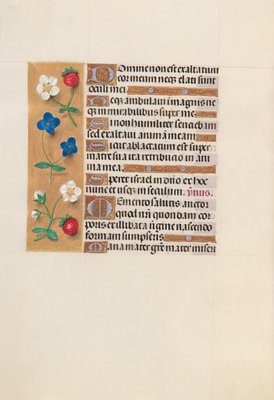 Domine non est exaltatum
cor meum neqz elati sunt
oculi mei.
Neqz ambulaui i magnis ne
qz mirabilibus super me.
Si non humiliter sentiebam
sed exaltaui animā meam
Sicut ablactatus est super
matre sua ita retributio in aīa
mea.
Speret israel in dn̄o ex hoc
nunc et usqz in seculum. ymnus.
Memento salutis auctor
quod nr̄i quondam cor
poris ex illibata v̄gine nascendo
formam sumpseris
Maria mater grē mater miseri